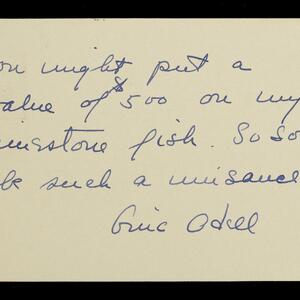 ou might put a
value of $500 on my
limestone fish. So So
be such a nuisance
Eric Odell